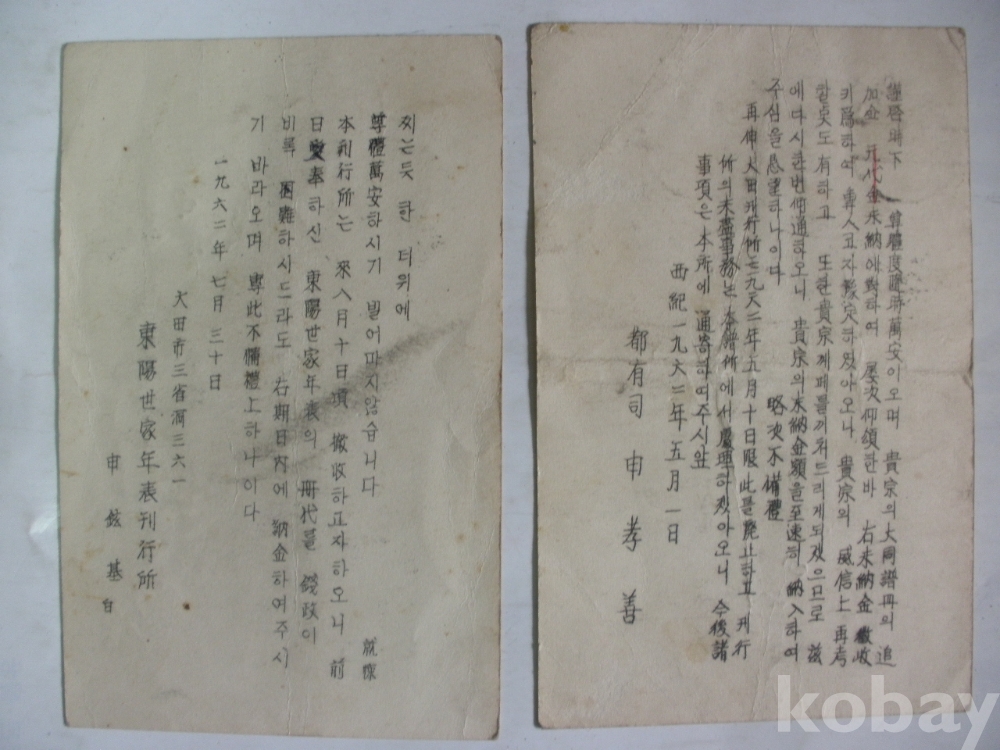 謹啓時下 尊體度隨時萬安이오며 貴宗의大同譜冊의 追
加金 代金未納에對하여 屡次仰領한바 右未納金 徴收
키爲하여 專人코자豫定하렸아오나 貴宗의 威信上 再考
할点도有하고 또한貴宗께페를끼쳐드리게되겠으므로 玆
에다시한번仰通하오니 貴宗의未納金額을至速히 納入하여
주심을恳望하나이다 略次不備禮
再伸 大田刊行所는一九六二年五月十日限此를廃止하고 刊行
所의未盡事務는 本譜所에서 處理하겠아오니 今後諸
事項은本所에 通寄하여주시앞
西紀一九六二年五月一日
都有司 申孝善
찌는듯 한 더위에
尊禮萬安하시기 빌어마지않습니다 就悚
本刊行所는 來八月十日頃 撤收하고자하오니 前
日奉하신 東陽世家年表의 冊代를 錢政이
비록 困難하시드라도 右期日內에 納金하여주시
기 바라오며 專此不備禮上하나이다
一九六二年七月三十日
大田市三省洞三六一
東陽世家年表刊行所
申鉉基白
kobay